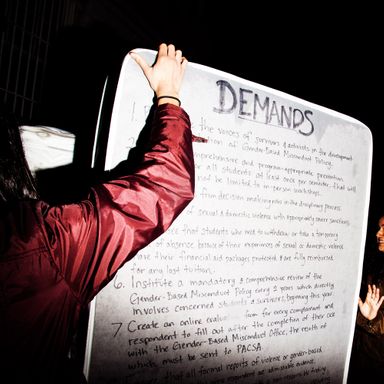 DEMANDS
1.
the voices of survivors & activists in the development
of Gender-Based Misconduct Policy.
comprehensive and program-appropriate prevention
for all students at least once per semester, that will
not be limited to in-person workshops.
from decision making roles in the disciplinary process
of sexual & domestic violence with appropriately severe sanctions.
that students who need to withdraw or take a temporary
of absence because of their experiences of sexual or domestic violence
have their financial aid packages protected & are fully reimbursed
for any lost tuition.
6. Institute a mandatory & comprehensive review of the
Gender-Based Misconduct Policy every 2 years which directly
involves concerned students & survivors, beginning this year.
7. Create an online evaluation form for every complainant and
respondent to fill out after the completion of their case
with the Gender-Based Misconduct Office, the results of
which must be sent to PACSA.
that all formal reports of violence or gender-based